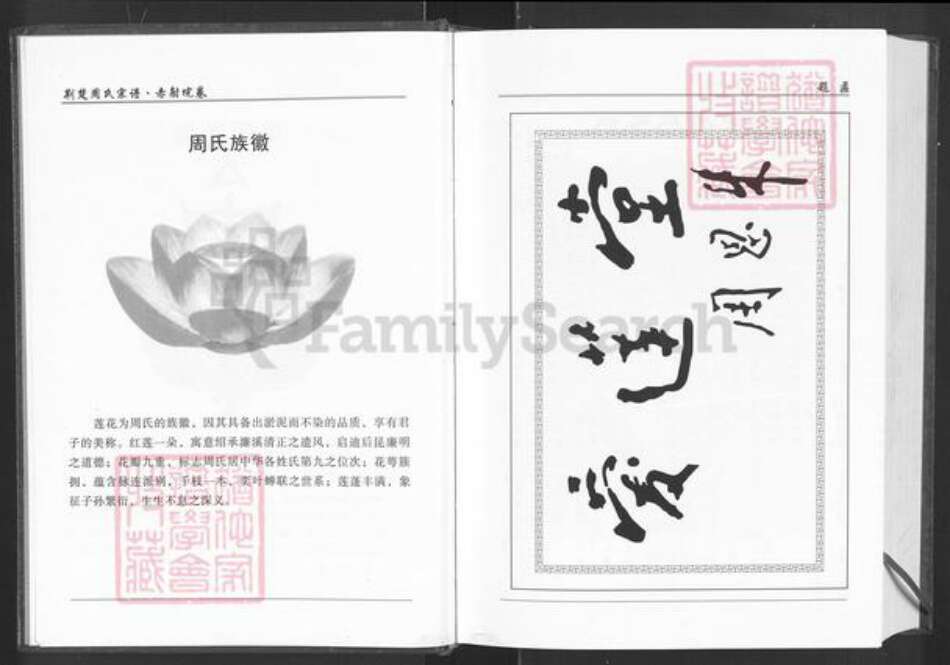 荆楚周氏宗谱·赤射垸卷
周氏族徽
莲花为周氏的族徽，因其具备出淤泥而不染的品质，享有君
子的美称。红莲一朵，寓意绍承濂溪清正之遗风，启迪后昆廉明
之道德；花瓣九重，标志周氏居中华各姓氏第九之位次；花萼簇
拥，蕴含脉连派别，千枝一本，奕叶蝉联之世系；莲蓬丰满，象
征子孙繁衍，生生不息之深义。
题匾
爱莲堂
周恩
FamilySearch